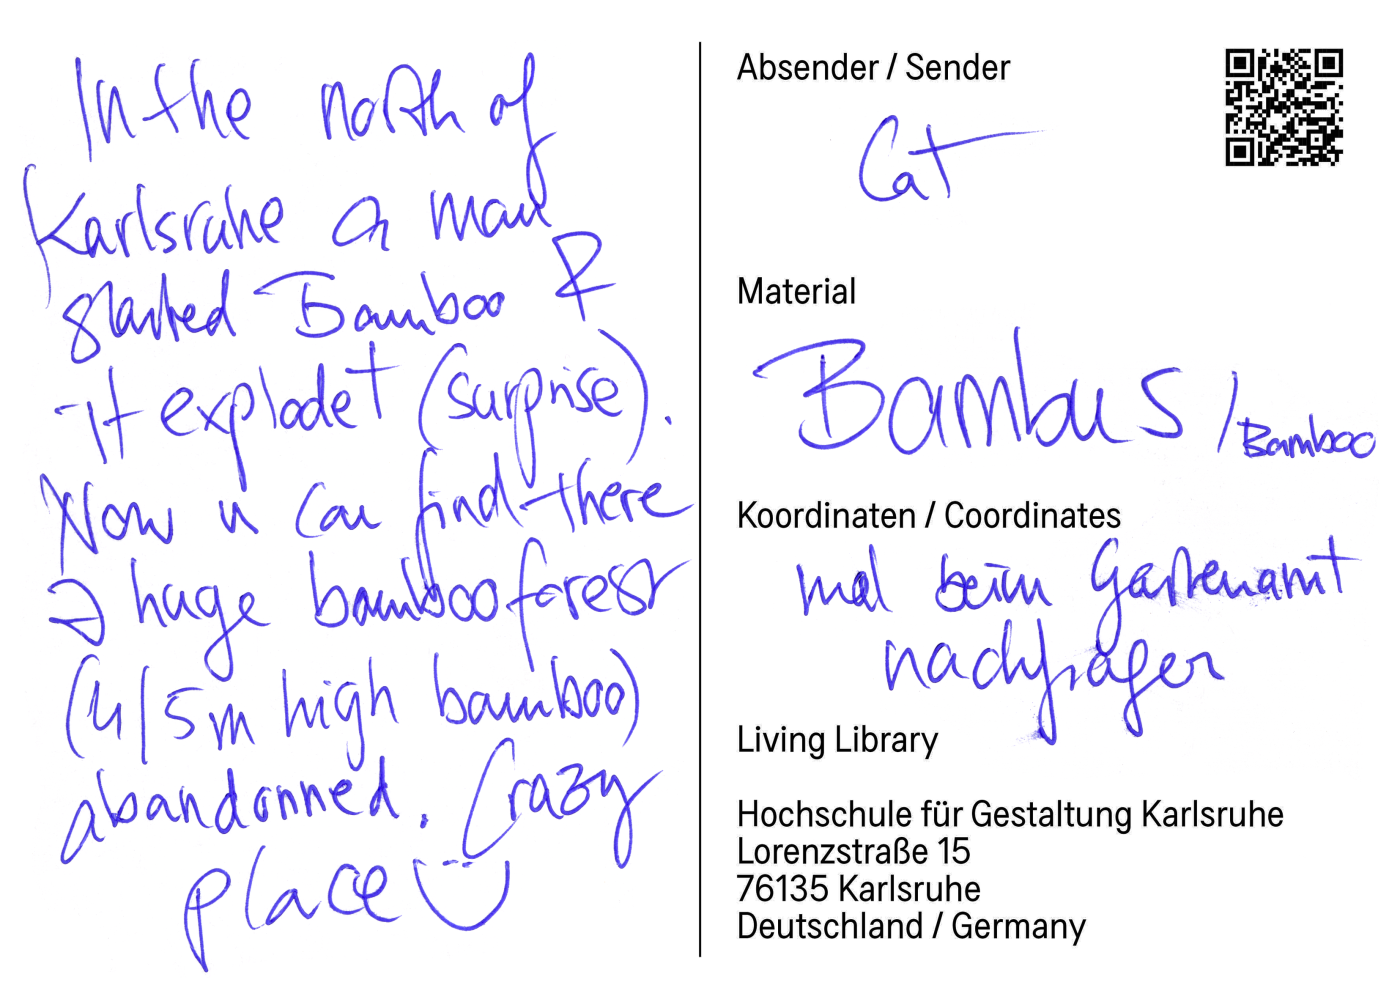 In the north of
Karlsruhe a man
started Bamboo &
it explodet (surprise).
Now u can find there
a huge bamboo forest
(4/5m high bamboo)
abandonned. Crazy
place
Absender / Sender
Cat
Material
Bambus / Bamboo
Koordinaten / Coordinates
mal beim Gartenamt
nachfragen
Living Library
Hochschule für Gestaltung Karlsruhe
Lorenzstraße 15
76135 Karlsruhe
Deutschland / Germany